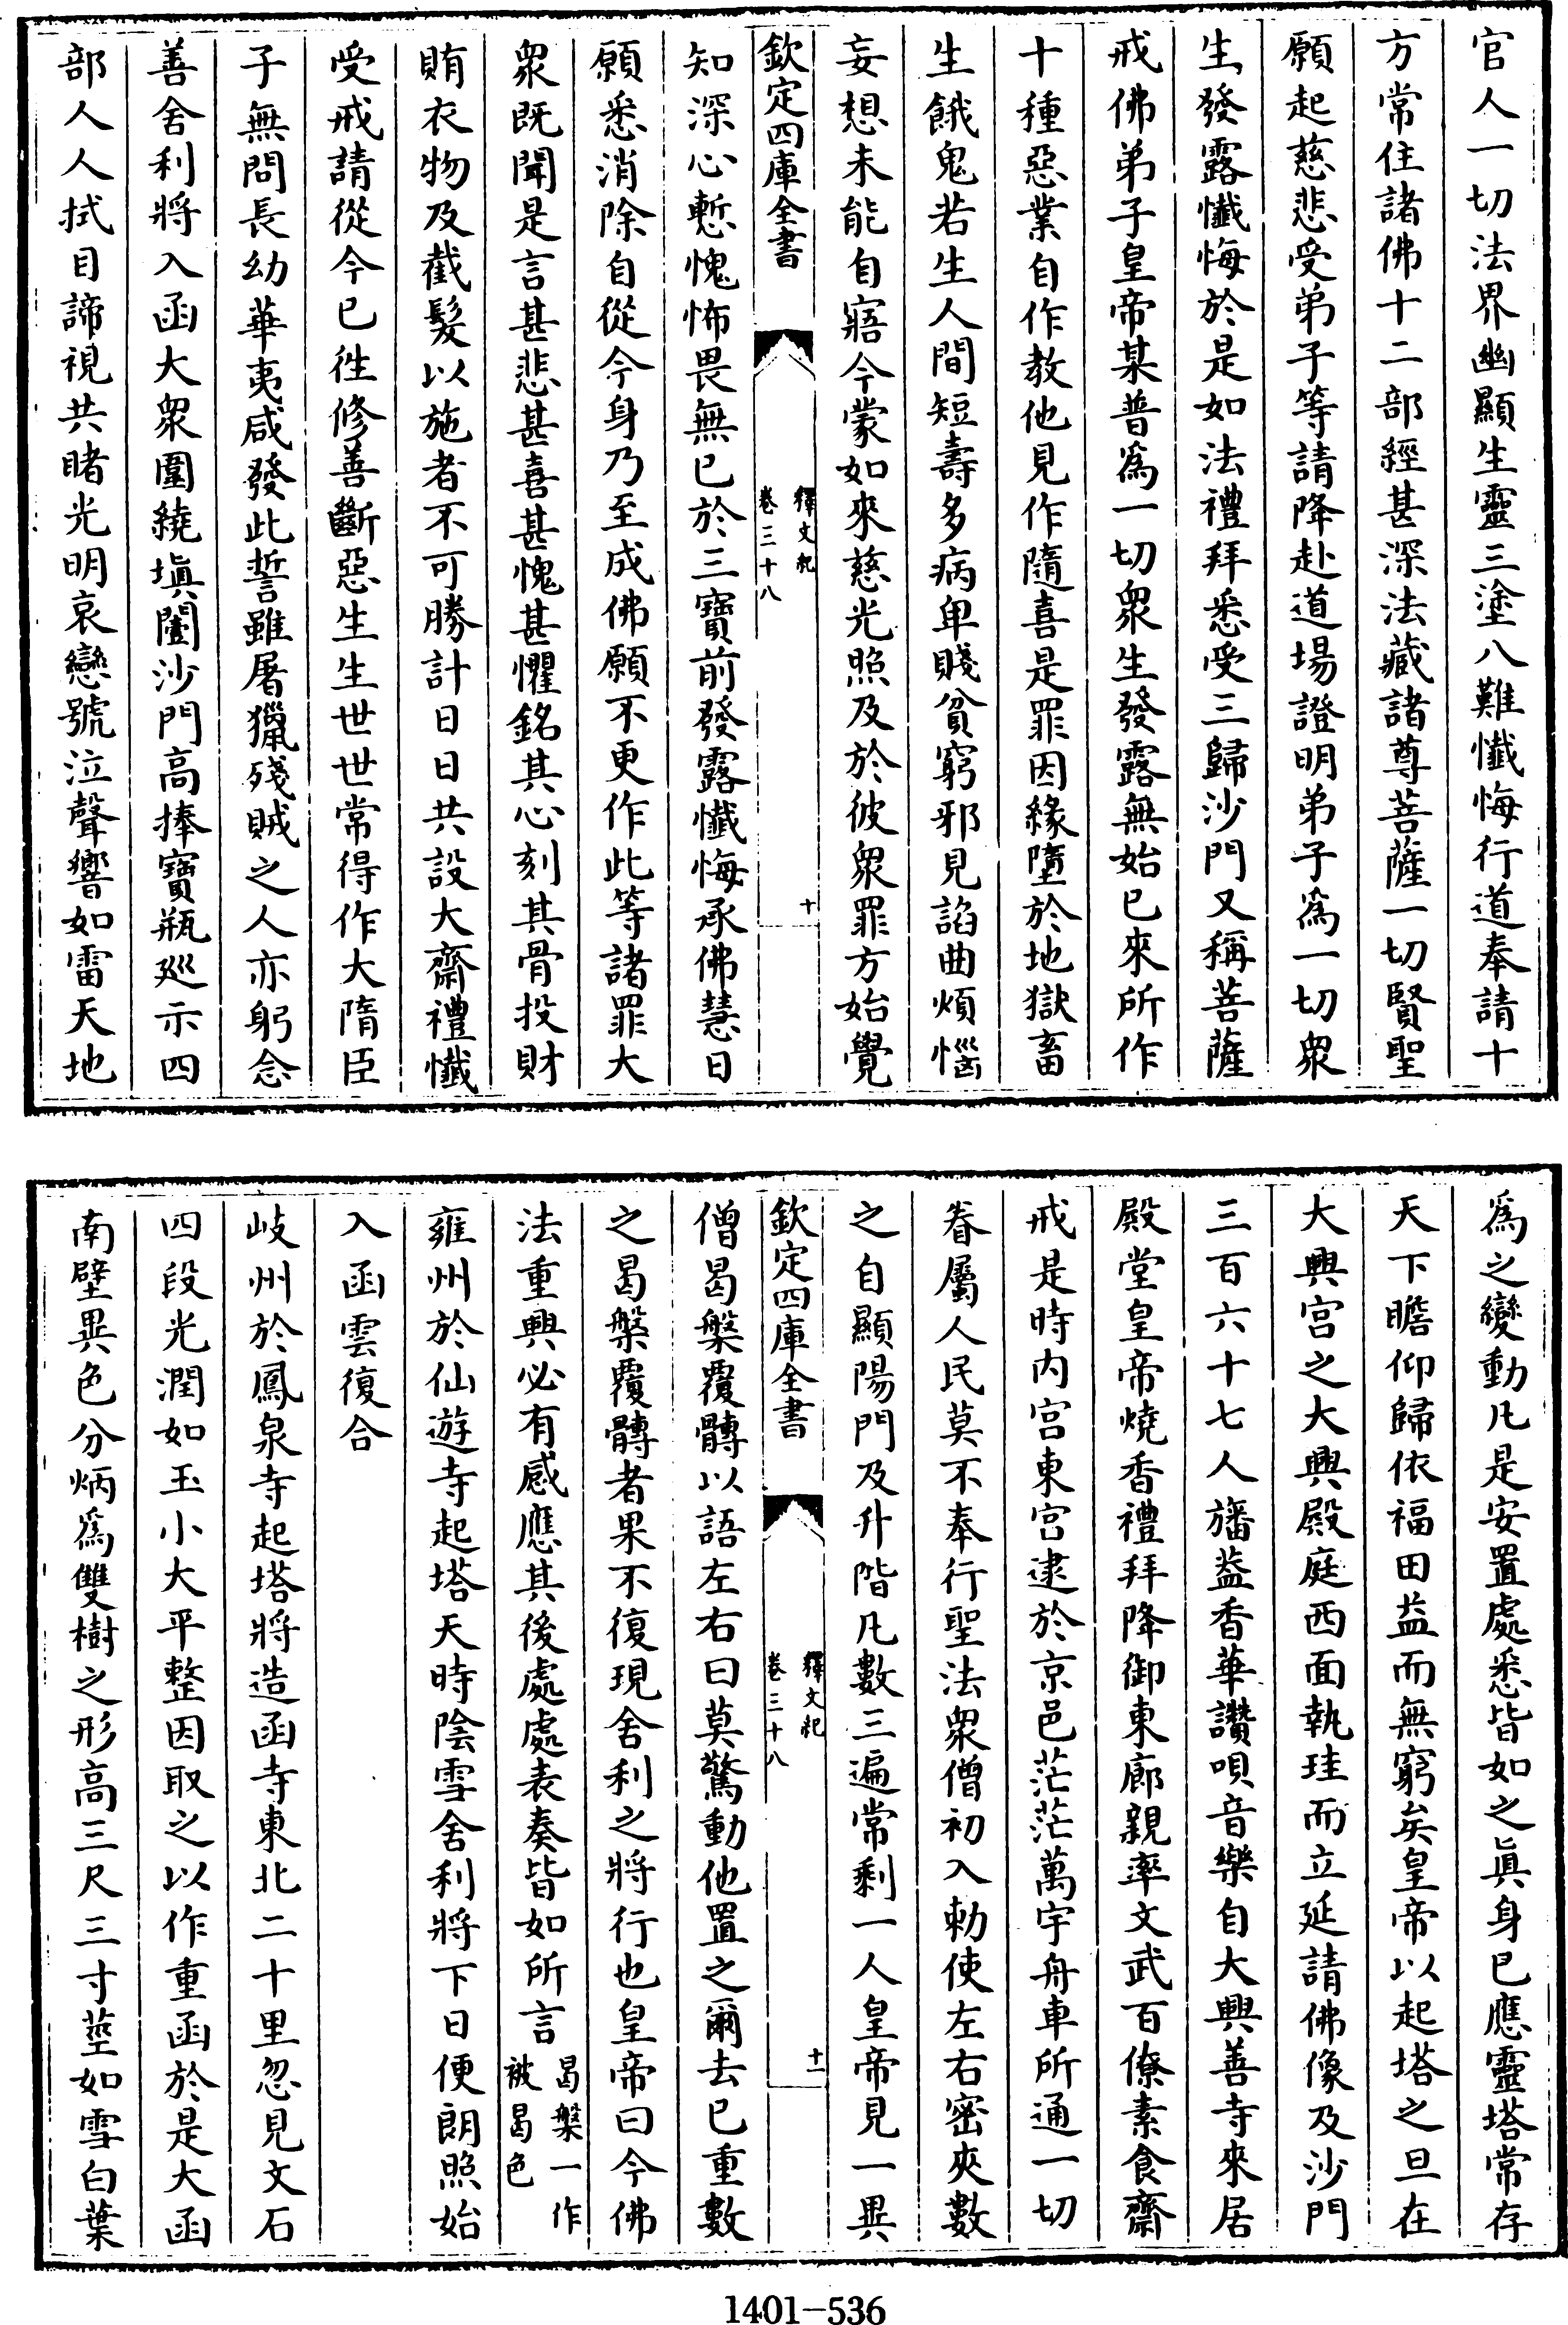 官人一切法界幽顯生靈三塗八難懺悔行道奉請十
方常住諸佛十二部經甚深法藏諸尊菩薩一切賢聖
願起慈悲受弟子等請降赴道場證明弟子爲一切衆
生發露懺悔於是如法禮拜悉受三歸沙門又稱菩薩
戒佛弟子皇帝某普爲一切衆生發露無始已來所作
十種惡業自作教他見作隨喜是罪因緣墮於地獄畜
生餓鬼若生人間短壽多病卑賤貧窮邪見諂曲煩惱
妄想未能自寤今蒙如來慈光照及於彼衆罪方始覺
欽定四庫全書
釋文紀
卷三十八
十
知深心慙愧怖畏無已於三寶前發露懺悔承佛慧日
願悉消除自從今身乃至成佛願不更作此等諸罪大
衆既聞是言甚悲甚喜甚愧甚懼銘其心刻其骨投財
賄衣物及截髮以施者不可勝計日日共設大齋禮懺
受戒請從今已徃修善斷惡生生世世常得作大隋臣
子無問長幼華夷咸發此誓雖屠獵殘賊之人亦躬念
善舍利將入函大衆圍繞塡闉沙門高捧寶瓶巡示四
部人人拭目諦視共睹光明哀戀號泣聲響如雷天地
爲之變動凡是安置處悉皆如之眞身已應靈塔常存
天下瞻仰歸依福田益而無窮矣皇帝以起塔之旦在
大興宮之大興殿庭西面執珪而立延請佛像及沙門
三百六十七人旛蓋香華讚唄音樂自大興善寺來居
殿堂皇帝燒香禮拜降御東廊親率文武百僚素食齋
戒是時内宮東宮逮於京邑茫茫萬宇舟車所通一切
眷屬人民莫不奉行聖法衆僧初入勅使左右密夾數
之自顯陽門及升階凡數三遍常剩一人皇帝見一異
欽定四庫全書
釋文紀
卷三十八
十一
僧曷槃覆髆以語左右曰莫驚動他置之爾去已重數
之曷槃覆髆者果不復現舍利之將行也皇帝曰今佛
法重興必有感應其後處處表奏皆如所言曷槃一作被曷色
雍州於仙遊寺起塔天時陰雪舍利將下日便朗照始
入函雲復合
岐州於鳳泉寺起塔將造函寺東北二十里忽見文石
四段光潤如玉小大平整因取之以作重函於是大函
南壁異色分炳爲雙樹之形高三尺三寸莖如雪白葉
1401-536